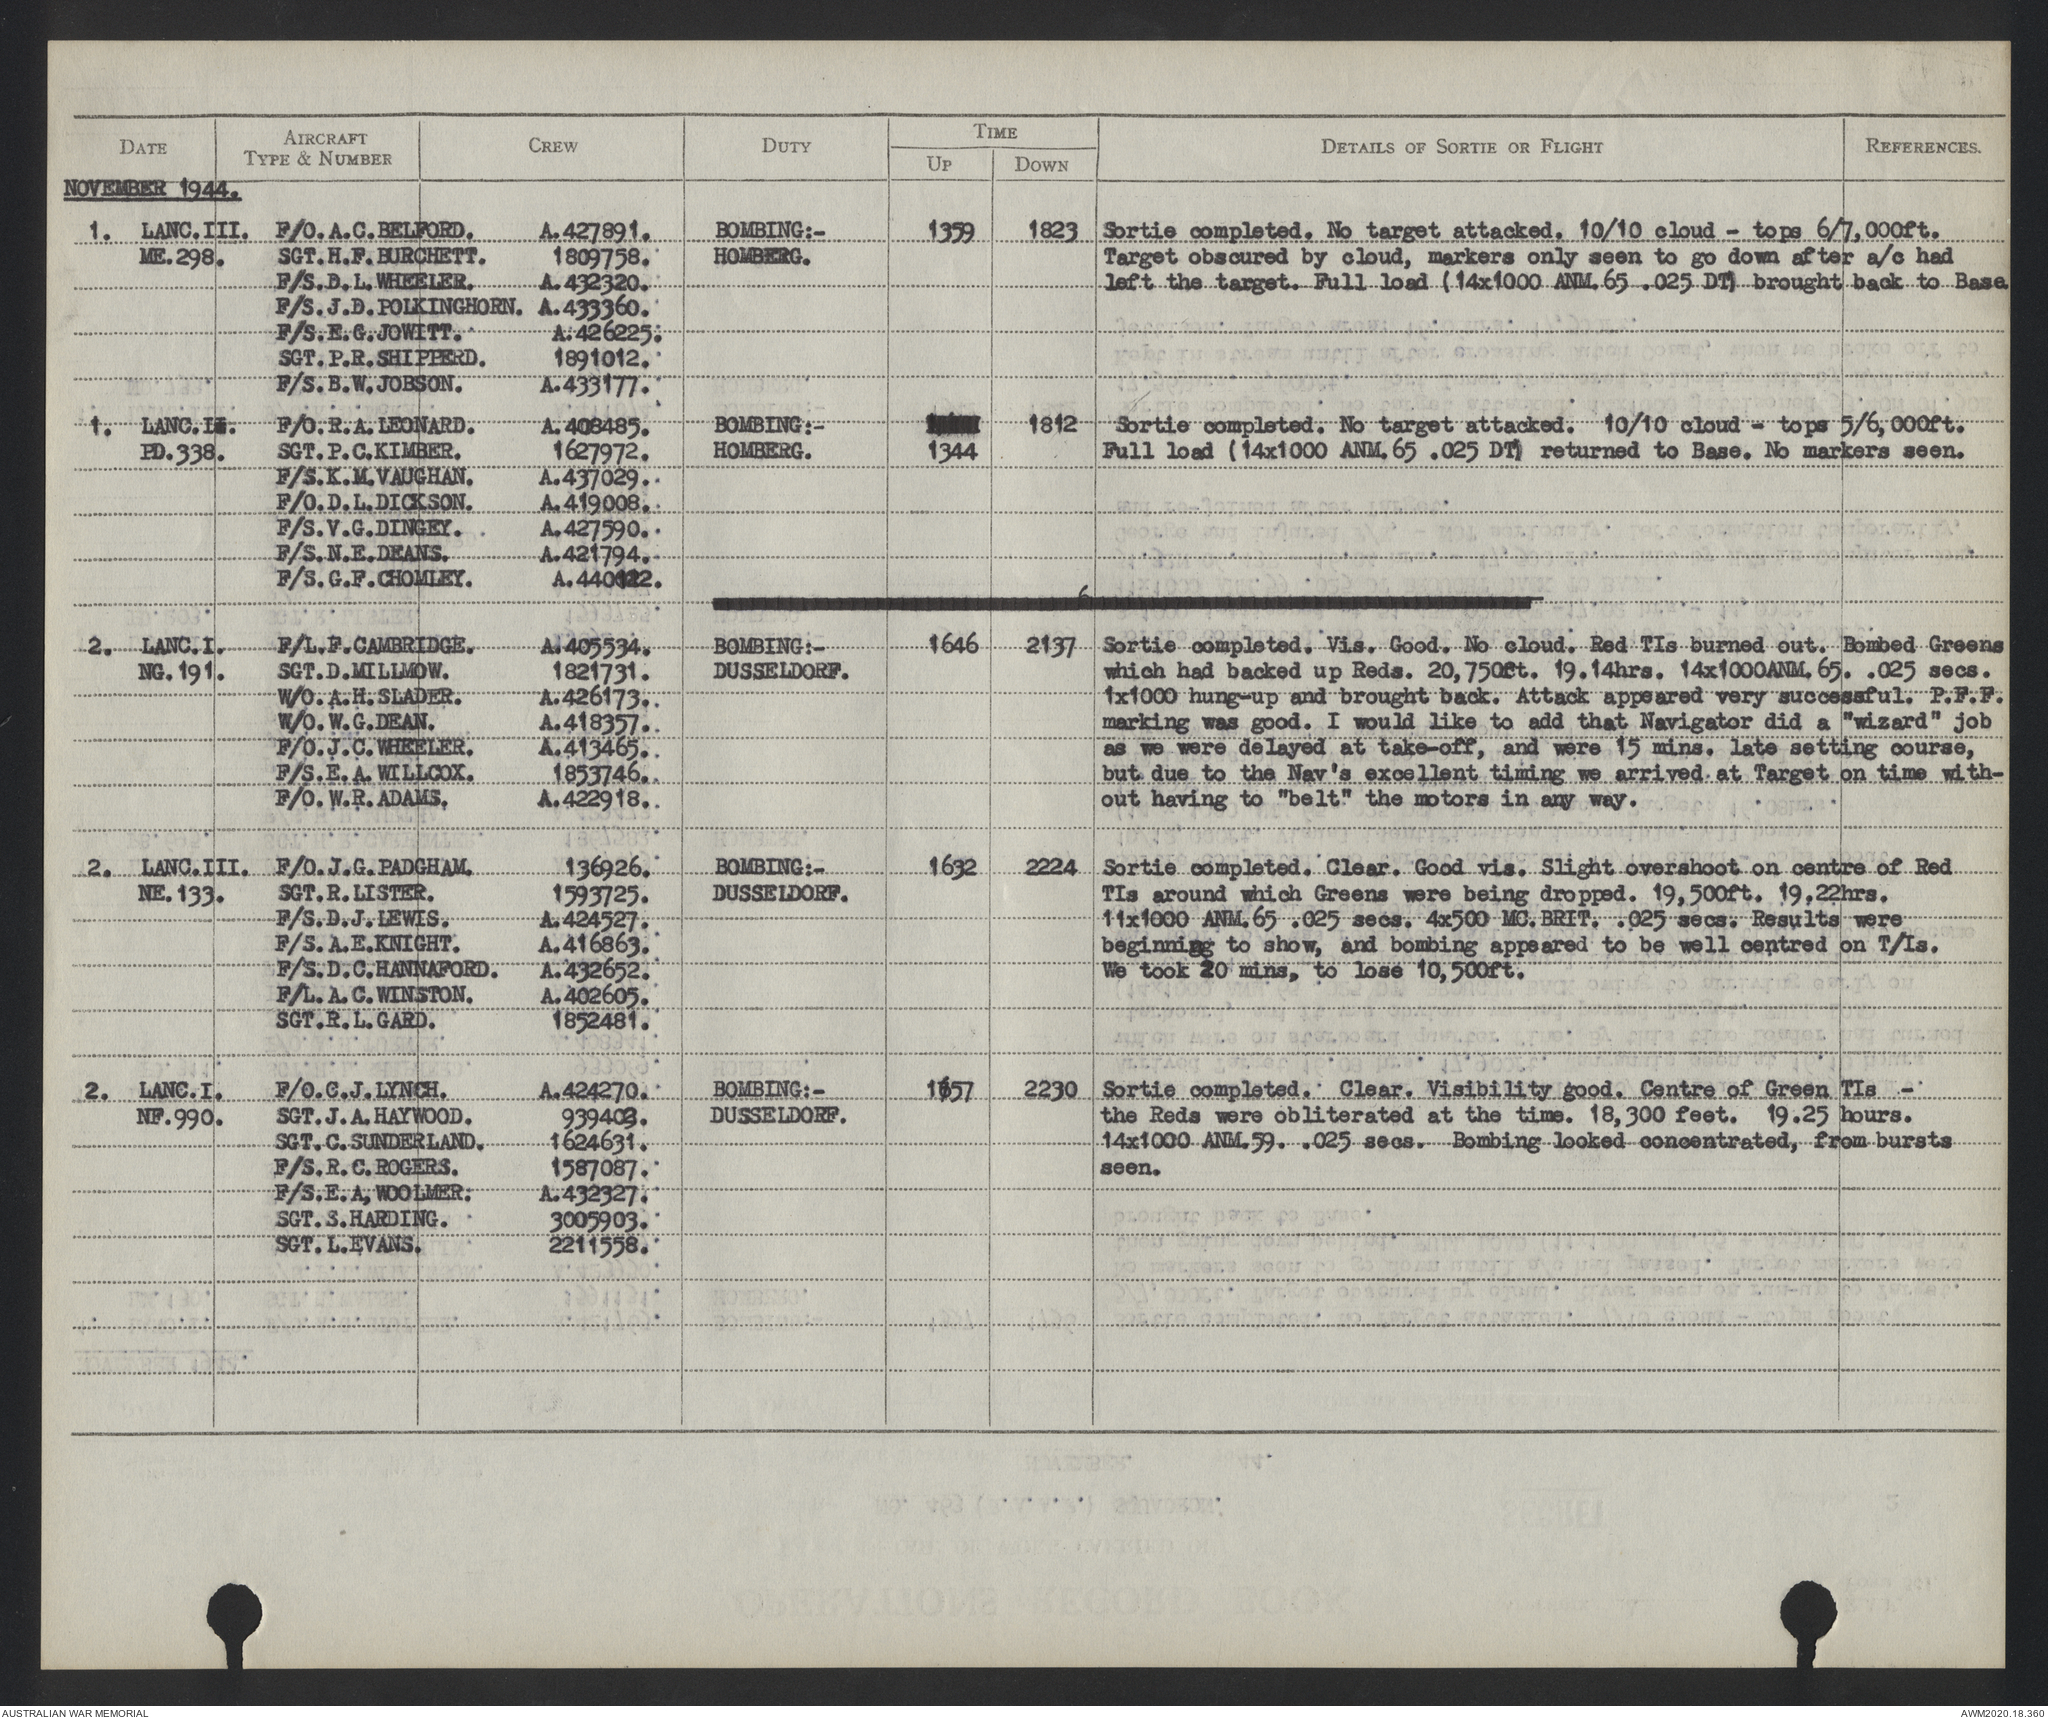 DATE AIRCRAFT TYPE & NUMBER CREW DUTY TIME UP DOWN DETAILS OF SORTIE OR FLIGHT REFERENCES.
NOVEMBER 1944.
1. LANC.III. F/O.A.C.BELFORD. A.427891. BOMBING:- 1359 1823 Sortie completed. No target attacked. 10/10 cloud - tops 6/7,000ft.
ME.298. SGT.H.F.BURCHETT. 1809758. HOMBERG. Target obscured by cloud, markers only seen to go down after a/c had
F/S.D.L.WHEELER. A.432320. left the target. Full load (14x1000 ANM.65 .025 DT) brought back to Base
F/S.J.D.POLKINGHORN. A.433360.
F/S.E.G.JOWITT. A.426225.
SGT.P.R.SHIPPERD. 1891012.
F/S.B.W.JOBSON. A.433177.
1. LANC.I. F/O.R.A.LEONARD. A.408485. BOMBING:- 1812 Sortie completed. No target attacked. 10/10 cloud - tops 5/6,000ft.
PD.338. SGT.P.C.KIMBER. 1627972. HOMBERG. 1344 Full load (14x1000 ANM.65 .025 DT) returned to Base. No markers seen.
F/S.K.M.VAUGHAN. A.437029.
F/O.D.L.DICKSON. A.419008.
F/S.V.G.DINGEY. A.427590.
F/S.N.E.DEANS. A.421794.
F/S.G.F.CHOMLEY.
2. LANC.I. F/L.F.CAMBRIDGE. A.405534. BOMBING:- 1646 2137 Sortie completed. Vis. Good. No cloud. Red TIs burned out. Bombed Greens
NG.191. SGT.D.MILLMOW. 1821731. DUSSELDORF. which had backed up Reds. 20,750ft. 19.14hrs. 14x1000ANM.65. .025 secs.
W/O.A.H.SLADER. A.426173. 1x1000 hung-up and brought back. Attack appeared very successful. P.F.F.
W/O.W.G.DEAN. A.418357. marking was good. I would like to add that Navigator did a "wizard" job
F/O.J.C.WHEELER. A.413465. as we were delayed at take-off, and were 15 mins. late setting course,
F/S.E.A.WILLCOX. 1853746. but due to the Nav's excellent timing we arrived at Target on time with-
F/O.W.R.ADAMS. A.422918. out having to "belt" the motors in any way.
2. LANC.III. F/O.J.G.PADGHAM. 136926. BOMBING:- 1632 2224 Sortie completed. Clear. Good vis. Slight overshoot on centre of Red
NE.133. SGT.R.LISTER. 1593725. DUSSELDORF. TIs around which Greens were being dropped. 19,500ft. 19,22hrs.
F/S.D.J.LEWIS. A.424527. 11x1000 ANM.65 .025 secs. 4x500 MC.BRIT. .025 secs. Results were
F/S.A.E.KNIGHT. A.416863. beginning to show, and bombing appeared to be well centred on T/Is.
F/S.D.C.HANNAFORD. A.432652. We took 20 mins, to lose 10,500ft.
F/L.A.C.WINSTON. A.402605.
SGT.R.L.GARD. 1852481.
2. LANC.I. F/O.C.J.LYNCH. A.424270. BOMBING:- 1657 2230 Sortie completed. Clear. Visibility good. Centre of Green TIs -
NF.990. SGT.J.A.HAYWOOD. DUSSELDORF. the Reds were obliterated at the time. 18,300 feet. 19.25 hours.
SGT.C.SUNDERLAND. 1624631. 14x1000 ANM.59. .025 secs. Bombing looked concentrated, from bursts
F/S.R.C.ROGERS. 1587087. seen.
F/S.E.A,WOOLMER. A.432327.
SGT.S.HARDING. 3005903.
SGT.L.EVANS. 2211558.
AUSTRALIAN WAR MEMORIAL AWM2020.18.360